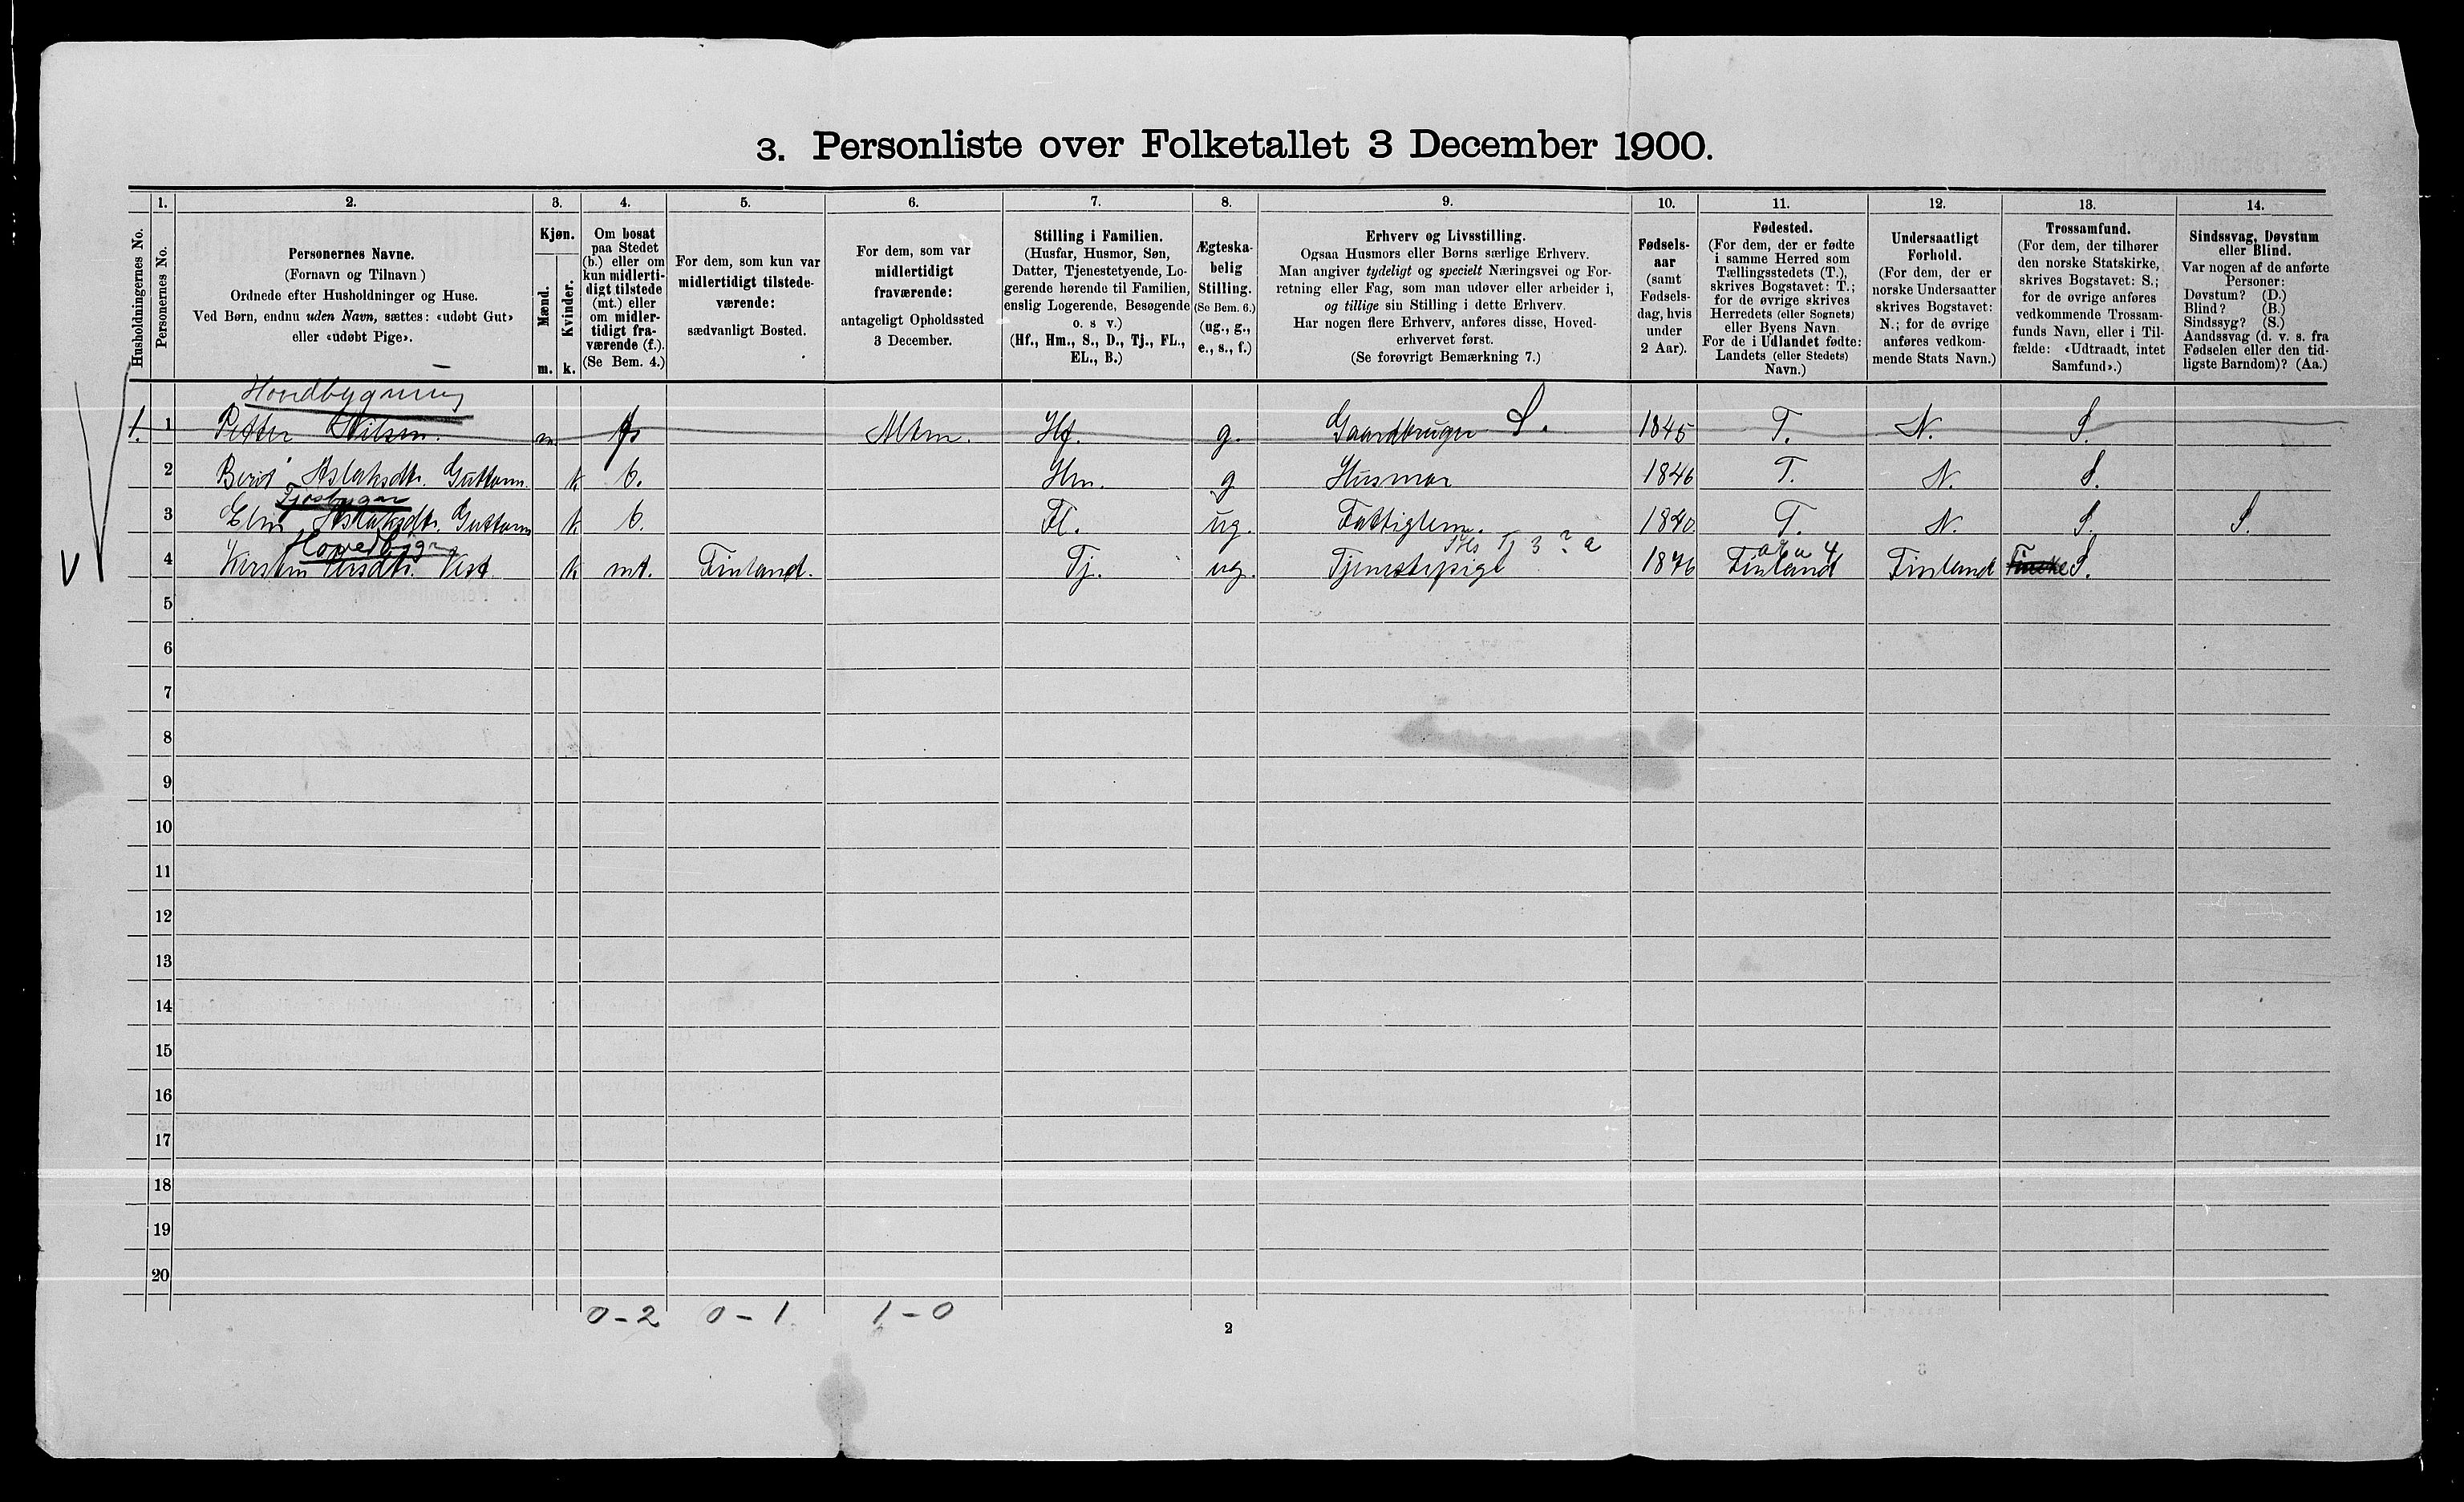 3. Personliste over Folketallet 3 December 1900.
Husholdningernes No.
1.
Personernes No.
2.
Personernes Navne.
(Fornavn og Tilnavn)
Ordnede efter Husholdninger og Huse.
Ved Børn, endnu uden Navn, sættes: «udøbt Gut»
eller «udøbt Pige».
3.
Kjøn.
Mænd.
m.
Kvinder.
k.
4.
Om bosat
paa Stedet
(b.) eller om
kun midlerti-
digt tilstede
(mt.) eller
om midler-
tidigt fra-
værende (f.).
(Se Bem. 4.)
5.
For dem, som kun var
midlertidigt tilstede-
værende:
sædvanligt Bosted.
6.
For dem, som var
midlertidigt
fraværende:
antageligt Opholdssted
3 December.
7.
Stilling i Familien.
(Husfar, Husmor, Søn,
Datter, Tjenestetyende, Lo-
gerende hørende til Familien,
enslig Logerende, Besøgende
o. s v.)
(Hf., Hm., S., D., Tj., FL.,
EL., B.)
8.
Ægteska-
belig
Stilling.
(Se Bem. 6.)
(ug., g.,
e., s., f.)
9.
Erhverv og Livsstilling.
Ogsaa Husmors eller Børns særlige Erhverv.
Man angiver tydeligt og specielt Næringsvei og For-
retning eller Fag, som man udøver eller arbeider i,
og tillige sin Stilling i dette Erhverv.
Har nogen flere Erhverv, anføres disse, Hoved-
erhvervet først.
(Se forøvrigt Bemærkning 7.)
10.
Fødsels-
aar
(samt
Fødsels-
dag, hvis
under
2 Aar).
11.
Fødested.
(For dem, der er fødte
i samme Herred som
Tællingsstedets (T.),
skrives Bogstavet: T.;
for de øvrige skrives
Herredets (eller Sognets)
eller Byens Navn.
For de i Udlandet fødte:
Landets (eller Stedets)
Navn.)
12.
Undersaatligt
Forhold.
(For dem, der er
norske Undersaatter
skrives Bogstavet:
N.; for de øvrige
anføres vedkom-
mende Stats Navn.)
13.
Trossamfund.
(For dem, der tilhører
den norske Statskirke,
skrives Bogstavet: S.;
for de øvrige anføres
vedkommende Trossam-
funds Navn, eller i Til-
fælde: «Udtraadt, intet
Samfund».)
14.
Sindssvag, Døvstum
eller Blind.
Var nogen af de anførte
Personer:
Døvstum? (D.)
Blind? (B.)
Sindssyg? (S.)
Aandssvag (d. v. s. fra
Fødselen eller den tid-
ligste Barndom)? (Aa.)
Hovedbygning
1. 1 Petter Nilsen. m f Alten. Hf. g. Gaardbruger S. 1845 T. N. S.
2 Berit Aslaksdtr. Guttorm. k b. Hm. g Husmor 1846 T. N. S.
Fjøsbygn
3 Elen Aslaksdtr. Guttorm k b. Fl. ug. Fattiglem. 1840 T. N. S. S.
Hovedbygn
Tj 3 ? a
4
4 Kirsten Persdtr. Vest k mt. Finland. Tj. ug. Tjenestepige 1876 Finland Finland S.
5
6
7
8
9
10
11
12
13
14
15
16
17
18
19
20
0-2 0-1 1-0
2